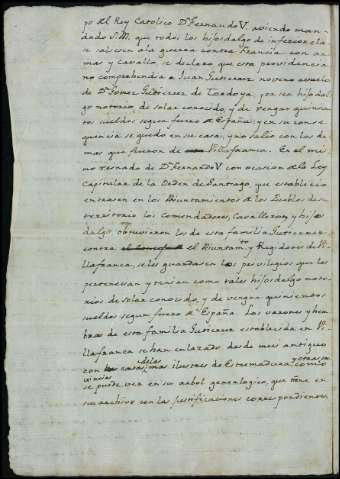 po del Rey Catolico Dn. Fernando V. aviendo man-
dado S.M. que todos los hijosdalgo de
se saliesen a la guerra contra Francia con ar-
mas y cavallo, se declaro que esta providencia
no comprehendia a Juan Gutierrez noveno abuelo
de Dn. Gomez Gutierrez de Tordoya, por ser hijodal-
go notorio de solar conocido, y de vengar quinien-
tos sueldos segun fuero de España; y en su conse-
quencia se quedo en su casa, y no salio con los de
mas que fueron de Villafranca. En el mis-
mo reynado de Dn. Fernando V. con ocasion de la Ley
Capitular de la Orden de Santiago, que establecio
entrasen en los Ayuntamientos de los Pueblos de su
territorio los comendadores, Cavalleros, y hijos
dalgo, obtuvieron los de esta familia Gutierrez
contra el Ayuntamto. y Regidores de Vi-
llafranca, se les guardasen los privilegios que les
pertenecian y tenian como tales hijosdalgo noto-
rios de solar conocido, y de vengar quinientos
sueldos segun fuero de España. Los varones y hem-
bras de esta familia Gutierrez establecida en Vi-
llafranca se han enlazado desde mui antiguo
con las casas mas ilustres de Estremadura, como
se puede ver en su arbol genealogico, que tiene en
su archivo con las justificaciones correspondientes